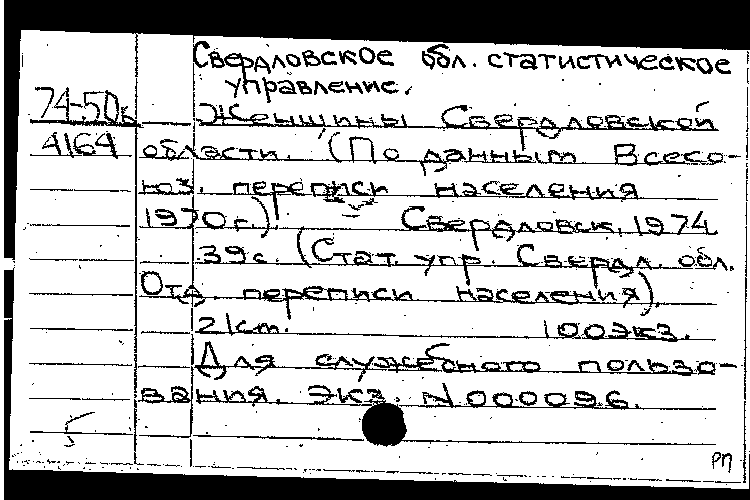 Свердловское обл. статистическое
управление.
74-50к Женщины Свердловской
4164 области. (По данным Всесо-
юз. переписи населения
1970 г.) Свердловск, 1974
39 с. (Стат. упр. Свердл. обл.
Отд. переписи населения).
21 cm. 100 экз.
Для служебного пользо-
вания. Экз. N 000096.
РП